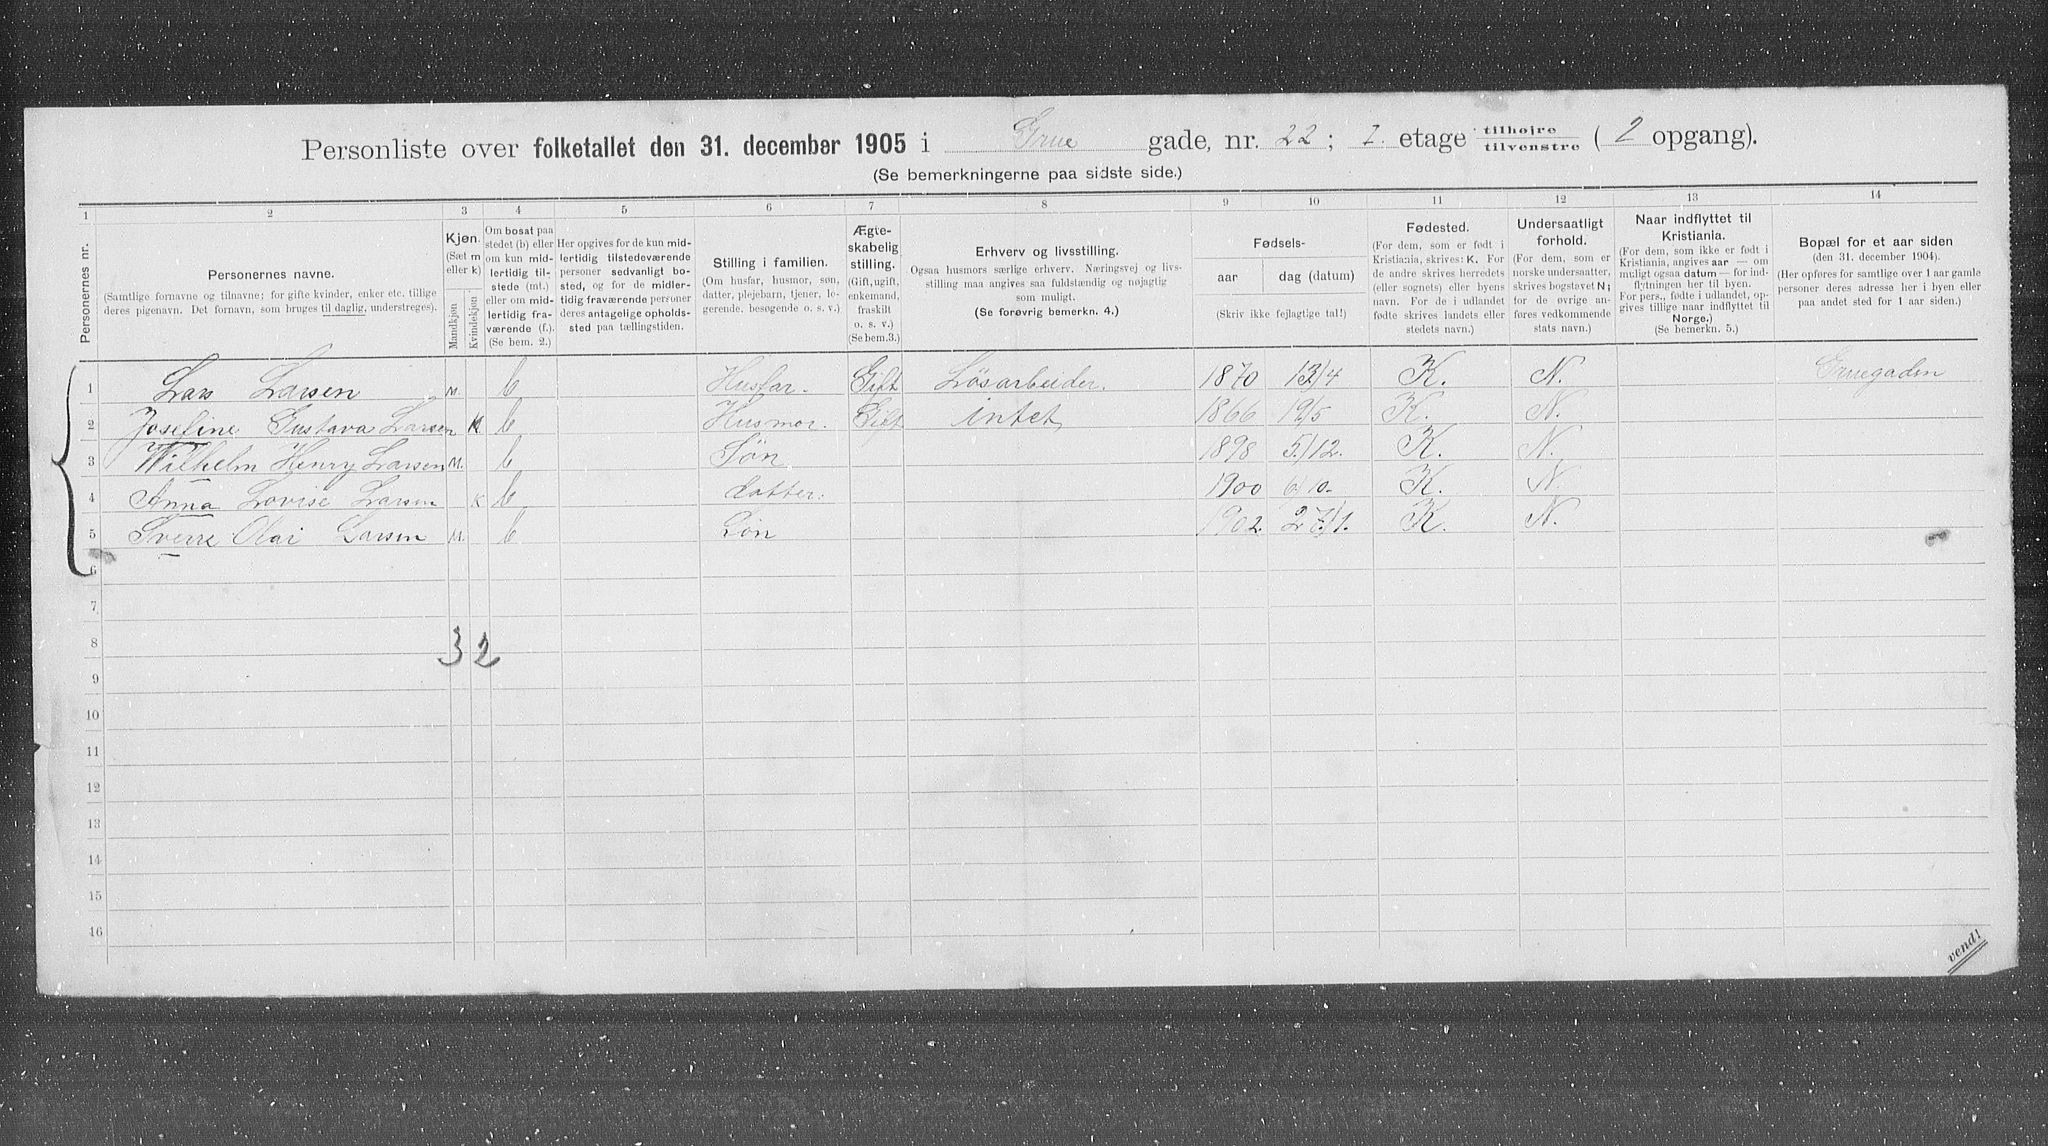 Personliste over folketallet den 31. december 1905 i Grue gade, nr. 22; I. etage tilhøjre tilvenstre (2 opgang).
(Se bemerkningerne paa sidste side.)
1 2 3 4 5 6 7 8 9 10 11 12 13 14
Personernes nr.
Personernes navne.
(Samtlige fornavne og tilnavne; for gifte kvinder, enker etc. tillige deres pigenavn. Det fornavn, som bruges til daglig, understreges).
Kjøn.
(Sæt m eller k)
Mandkjøn
Kvindekjøn
Om bosat paa stedet (b) eller om kun midlertidig tilstede (mt.) eller om midlertidig fraværende (f.). (Se bem. 2.)
Her opgives for de kun midlertidig tilstedeværende personer sedvanligt bosted, og for de midlertidig fraværende personer deres antagelige opholdssted paa tællingstiden.
Stilling i familien.
(Om husfar, husmor, søn, datter, plejebarn, tjener, logerende. besøgende o. s. v.)
Ægteskabelig stilling.
(Gift, ugift, enkemand, fraskilt o. s. v.)
(Se bem.3.)
Erhverv og livsstilling.
Ogsaa husmors særlige erhverv. Næringsvej og livsstilling maa angives saa fuldstændig og nøjagtig som muligt.
(Se forøvrig bemerkn. 4.)
Fødsels-
aar
dag (datum)
(Skriv ikke fejlagtige tal!)
Fødested.
(For dem, som er født i Kristiania, skrives: K. For de andre skrives herredets (eller sognets) eller byens navn. For de i udlandet fødte skrives landets eller stedets navn.)
Undersaatligt forhold.
(For dem, som er norske undersaatter, skrives bogstavet N; for de øvrige anføres vedkommende stats navn.)
Naar indflyttet til Kristiania.
(For dem, som ikke er født i Kristiania, angives aar — om muligt ogsaa datum — for indflytningen her til byen. For pers., fødte i udlandet, opgives tillige naar indflyttet til Norge.)
(Se bemerkn. 5.)
Bopæl for et aar siden
(den 31. december 1904).
(Her opføres for samtlige over 1 aar gamle personer deres adresse her i byen eller paa andet sted for 1 aar siden.)
1 Lars Larsen m. b Husfar. Gift Løsarbeider. 1870 13/4 K. N. Gruegaden
2 Josefine Gustava Larsen K b Husmor. Gift intet 1866 19/5 K. N.
3 Wilhelm Henry Larsen M. b Søn 1898 5/12. K. N.
4 Anna Lovise Larsen K b datter. 1900 6/10. K. N.
5 Sverre Olai Larsen M. b Søn 1902. 27/1. K. N.
6
7
8 3 2
9
10
11
12
13
14
15
16
vend!